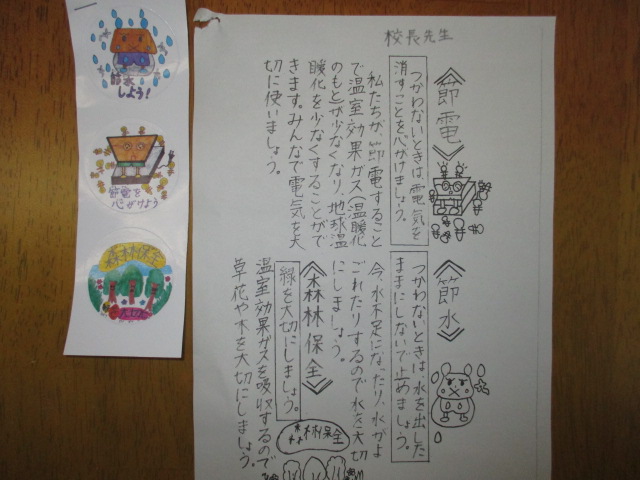 節水
しよう！
節電を
心がけよう
森林保全
校長先生
《節電》
つかわないときは、電気を
消すことを心がけましょう。
私たちが、節電すること
で温室効果ガス(温暖化
のもと)が少なくなり、地球温
暖化を少なくすることがで
きます。みんなで電気を大
切に使いましょう。
《節水》
つかわないときは、水を出した
ままにしないで止めましょう。
今、水不足になったり、水がよ
ごれたりするので水を大切
にしましょう。
《森林保全》
緑を大切にしましょう。
温室効果ガスを吸収するので
草花や木を大切にしましょう。
森林保全